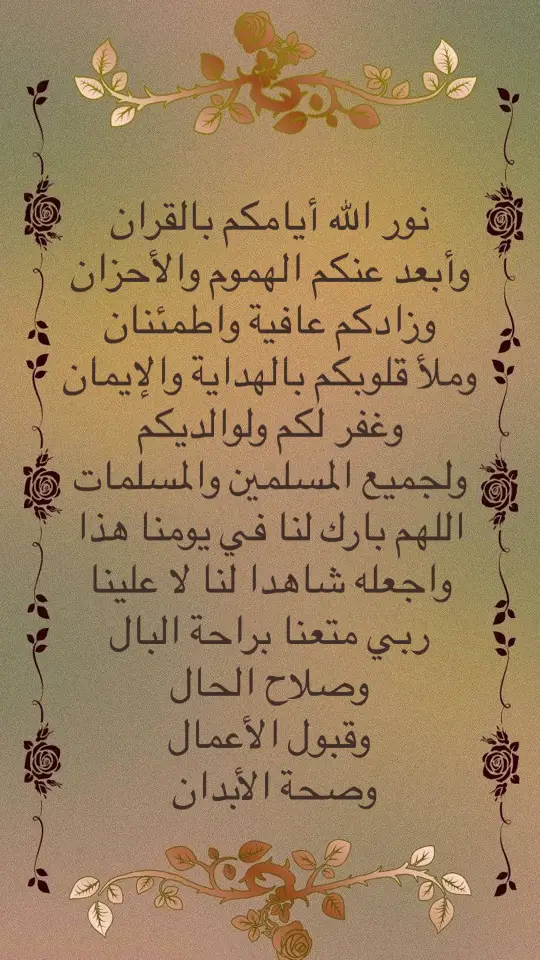 نور الله أيامكم بالقران
وأبعد عنكم الهموم والأحزان
وزادكم عافية واطمئنان
وملأ قلوبكم بالهداية والإيمان
وغفر لكم ولوالديكم
ولجميع المسلمين والمسلمات
اللهم بارك لنا في يومنا هذا
واجعله شاهدا لنا لا علينا
ربي متعنا براحة البال
وصلاح الحال
وقبول الأعمال
وصحة الأبدان